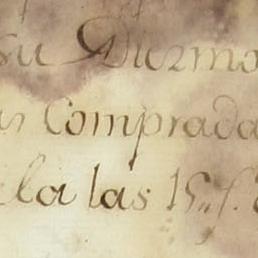 su Diezmo
as Comprada
ela las 15